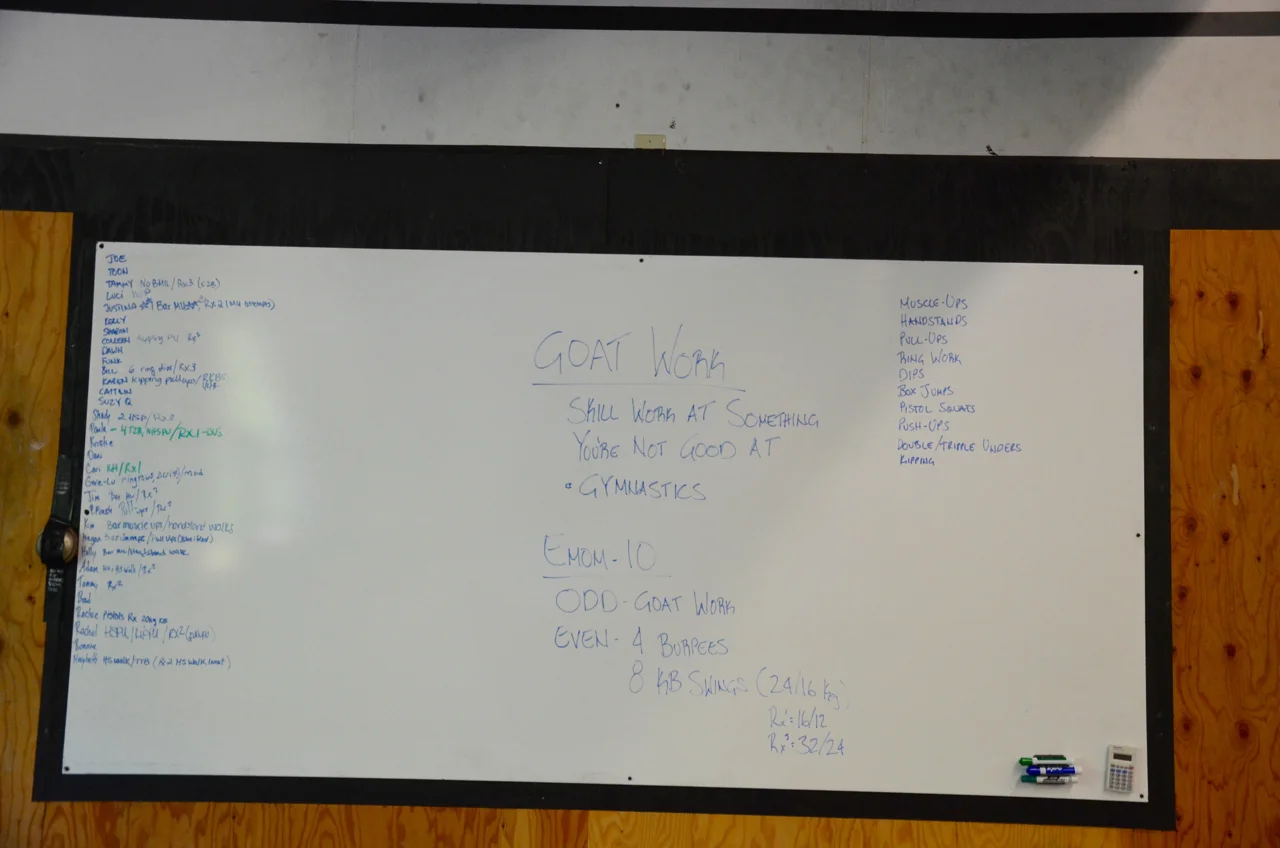 JOE
TOON
TAMMY NO BMU/Rx3 (C2B)
LUCI
JUSTINA 1 BAR MU
KELLY
SHARON
COLLEEN Kipping PU Rx³
DAWN
FUNK
BILL 6 ring dips/Rx3
KAREN Kipping pullups/
CAITLIN
SUZY Q
2 HSPU/Rx2
Paula - 4 T2B, HHSPU/RX1-DUS
Kristie
Dan
Cari KH/Rx1
ring rows,
Jim Bar MU/Rx²
Pull-ups/Rx²
Kim Bar muscle ups/handstand walks
Megan
Holly Bar MU/Handstand walk
Adam HS walk/Rx²
Tommy Rx²
Brad
Rachee Pistols Rx 20kg KB
Rachel HSPU/ /RX2
Bonnie
HS walk/TTB (Rx2 HS walk, )
GOAT WORK
SKILL WORK AT SOMETHING
YOU'RE NOT GOOD AT
• GYMNASTICS
EMOM-10
ODD-GOAT WORK
EVEN- 4 BURPEES
8 KB SWINGS (24/16 Kg)
Rx¹=16/12
Rx³=32/24
MUSCLE-UPS
HANDSTANDS
PULL-UPS
RING WORK
DIPS
BOX JUMPS
PISTOL SQUATS
PUSH-UPS
DOUBLE/TRIPLE UNDERS
KIPPING